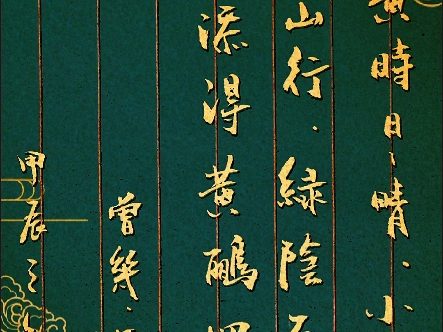 黃時日、晴.小
山行.綠陰
添得黃鸝
曾幾.
甲辰之